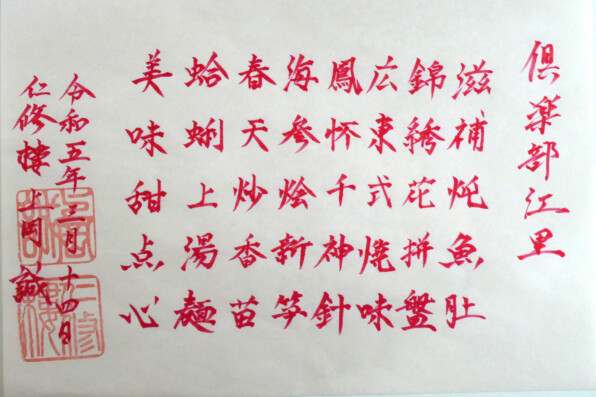 倶楽部江里
滋補炖魚肚
錦綉花拼盤
広東式焼味
鳳怀千神針
海参烩新笋
春天炒香苗
蛤蜊上湯麺
美味甜点心
令和五年三月十四日
仁修樓上岡誠